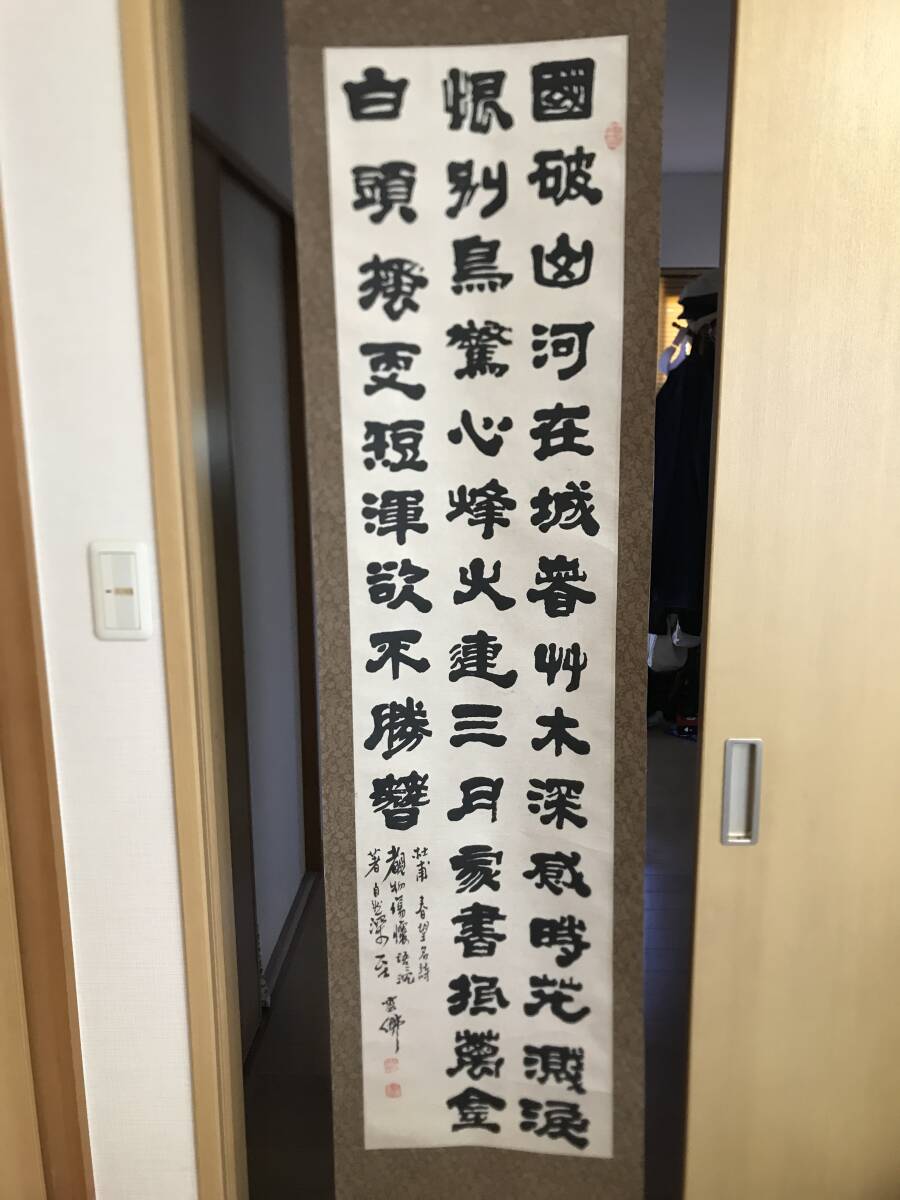 國破山河在城春艸木深感時花濺淚
恨別鳥驚心烽火連三月家書抵萬金
白頭搔更短渾欲不勝簪
杜甫 春望名詩
觀物傷懷語沉
著自然深